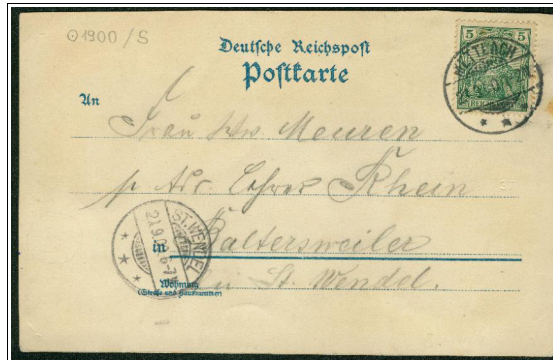 ⊙1900/S
Deutsche Reichspost
Postkarte
5
METTLACH
REICHSPOST
An
Frau Ww Meuren
p. Adr. Lehrer Rhein
in Baltersweiler
bei St. Wendel.
ST. WENDEL
21.9.
6-7N
Wohnung
(Straße und Hausnummer)